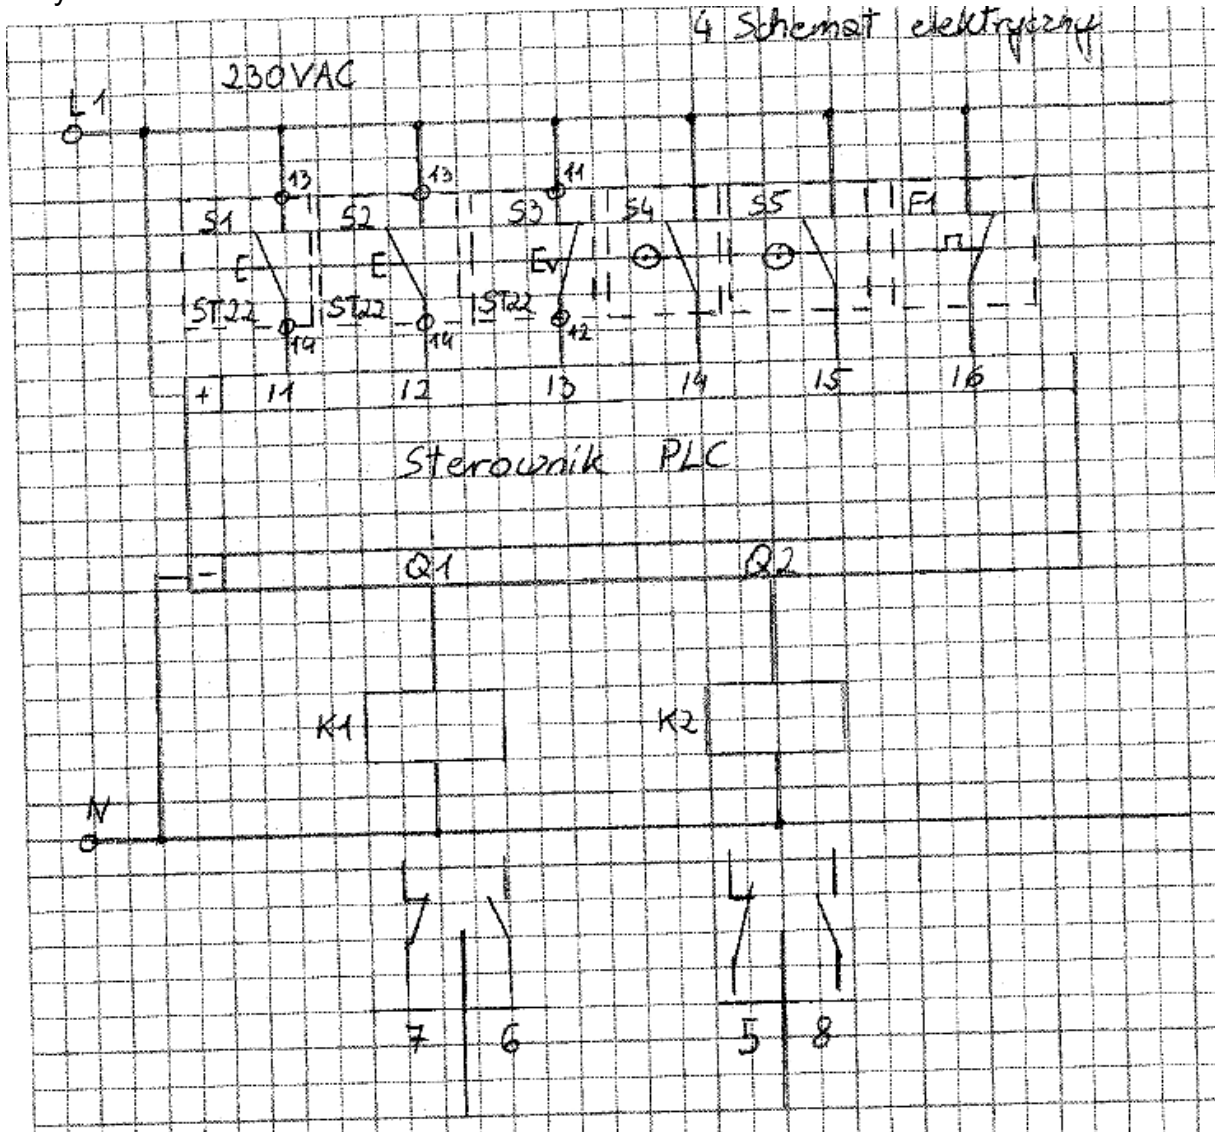 4 Schemat elektryczny
230VAC
L1
13 13 11
S1 S2 S3 S4 S5 F1
E E Ev
ST22 ST22 ST22
14 14 12
+ I1 I2 I3 I4 I5 I6
Sterownik PLC
- Q1 Q2
K1 K2
N
7 6 5 8